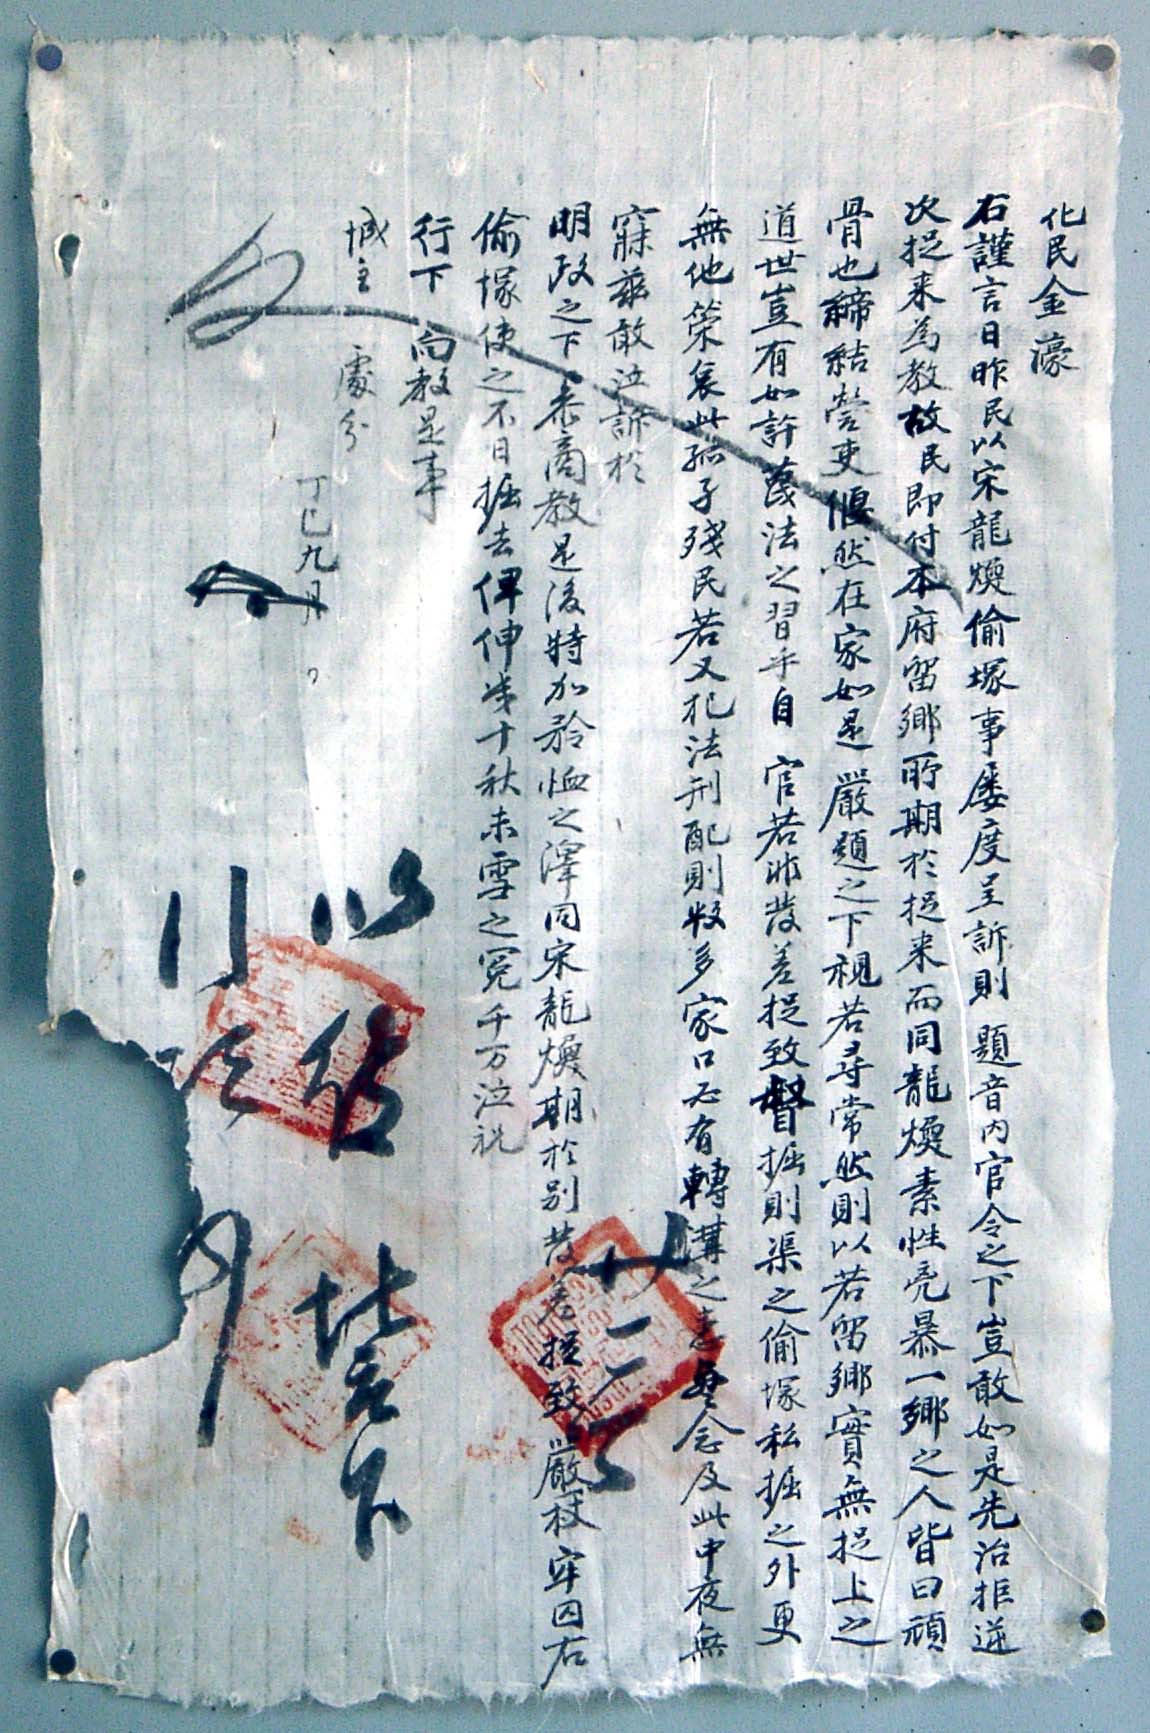 化民金濠
右謹言日昨民以宋龍煥偷塚事屢度呈訴則 題音內官令之下豈敢如是先治拒逆
次捉来為教故民即付本府留鄉所期於捉来而同龍煥素性兇暴一鄉之人皆曰頑
骨也締結營吏偃然在家如是嚴題之下視若尋常然則以若留鄉實無捉上之
道世豈有如許蔑法之習乎自 官若非發差捉致督掘則渠之偷塚私掘之外更
無他策哀此孤子殘民若又犯法刑配則數多家口必有轉溝之患每念及此中夜無
寐茲敢泣訴於
明政之下 参商教是後特加矜恤之澤同宋龍煥期於別發差捉致嚴杖牢囚右
偷塚使之不日掘去俾伸幾十秋未雪之冤千万泣祝
行下 向教是事
城主 處分
丁巳九月 日
廿二